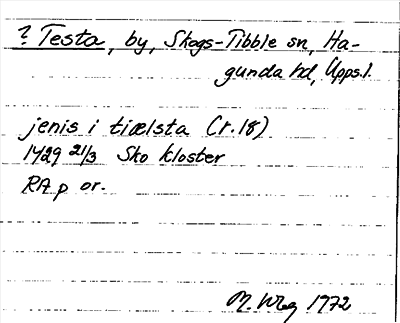 ? Testa, by, Skogs-Tibble sn, Ha-
gunda hd, Upps.l.
jenis i tiælsta (r.18)
1429 21/3 Sko kloster
RA p or.
M 1972